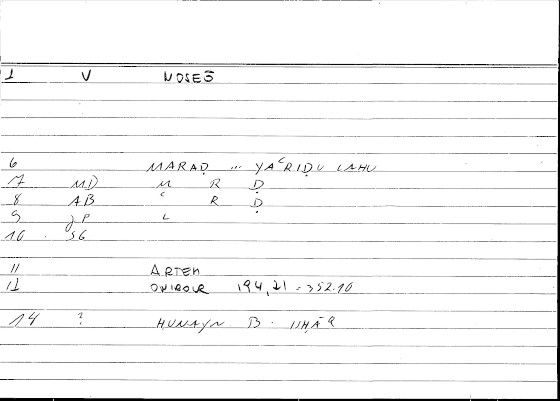 1 V NOSEŌ
6 MARAḌ ... YAʿRIḌU LAHU
7 MD M R Ḍ
8 AB ʿ R Ḍ
9 JP L
10 SG
11 ARTEM
194,21 = 352.10
14 ? HUNAYN B. ISḤĀQ